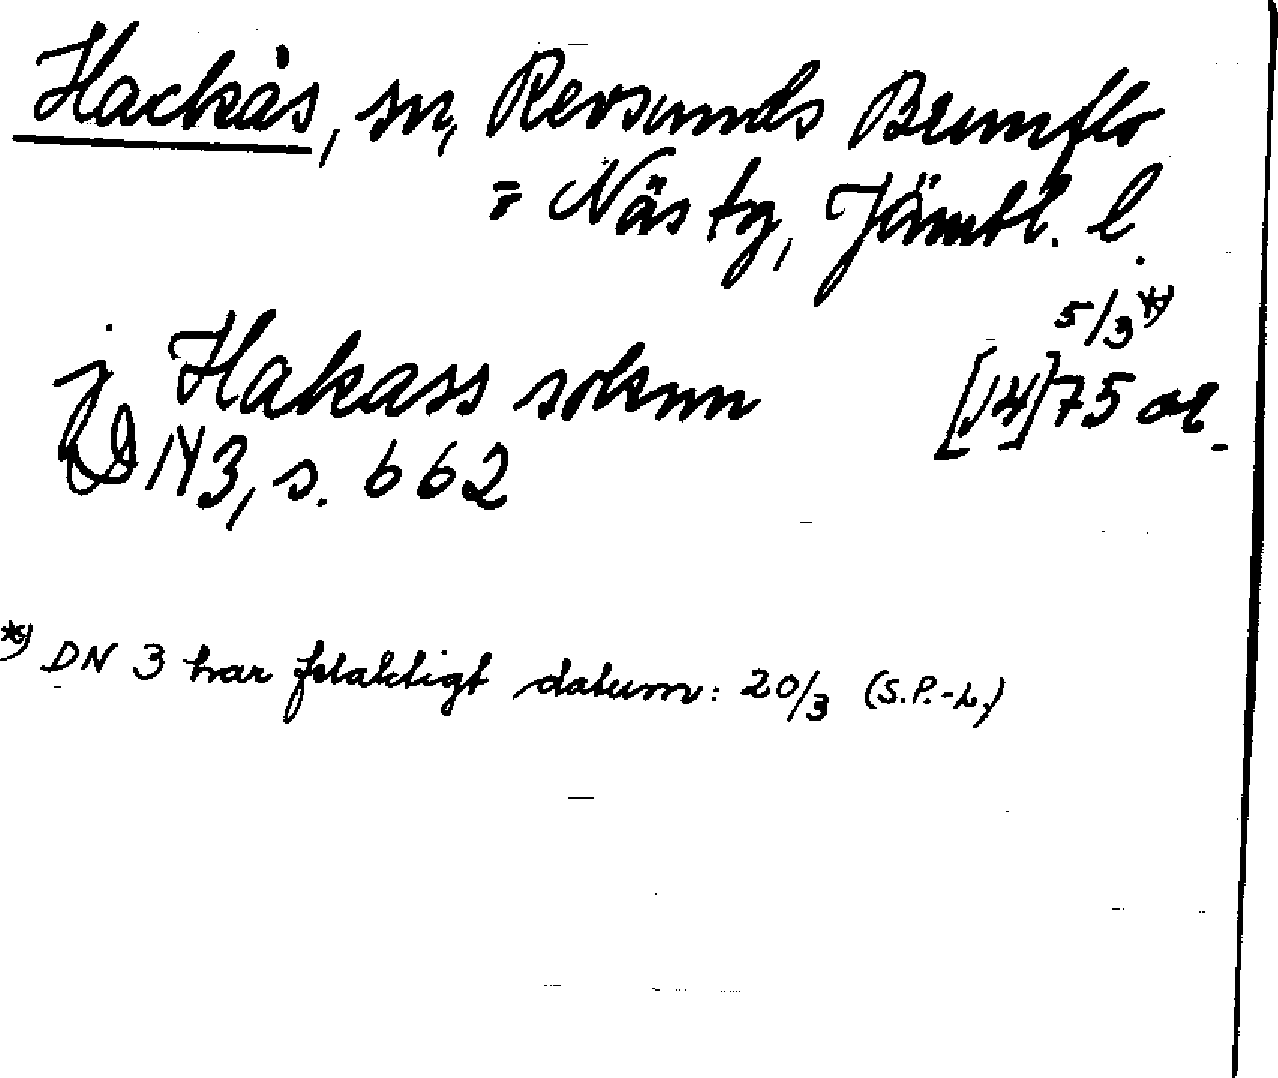 Hackås, sn, Revsunds Brunflo
o Näs tg, Jämtl. l.
5/3 *)
j Hakass soknn [14]75 or.
DN 3, s. 662
*) DN 3 har felaktigt datum: 20/3 (S.P.-L.)